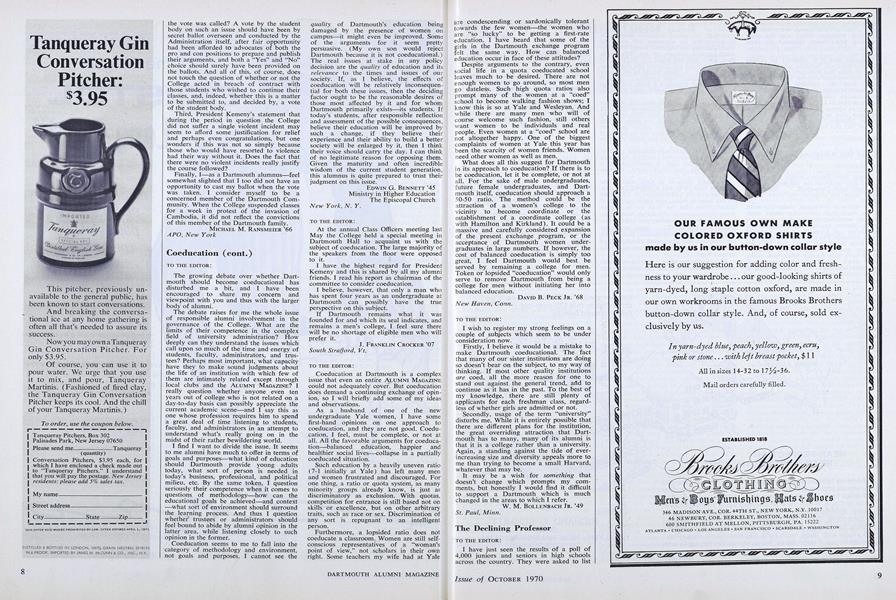 Tanqueray Gin
Conversation
Pitcher:
$3.95
IMPORTED
Tanqueray
This pitcher, previously un-
available to the general public, has
been known to start conversations.
And breaking the conversa-
tional ice at any home gathering is
often all that's needed to assure its
success.
Now you may own a Tanqueray
Gin Conversation Pitcher. For
only $3.95.
Of course, you can use it to
pour water. We urge that you use
it to mix, and pour, Tanqueray
Martinis. (Fashioned of fired clay,
the Tanqueray Gin Conversation
Pitcher keeps its cool. And the chill
of your Tanqueray Martinis.)
To order, use the coupon below.
Tanqueray Pitchers, Box 302
Palisades Park, New Jersey 07650
Please send me Tanqueray
(quantity)
Conversation Pitchers, $3.95 each, for
which I have enclosed a check made out
to "Tanqueray Pitchers." I understand
that you will pay the postage. New Jersey
residents: please add 5% sales tax.
My name
Street address
City State Zip
8
the vote was called? A vote by the student
body on such an issue should have been by
secret ballot overseen and conducted by the
Administration itself, after fair opportunity
had been afforded to advocates of both the
pro and con positions to prepare and publish
their arguments, and both a "Yes" and "No"
choice should surely have been provided on
the ballots. And all of this, of course, does
not touch the question of whether or not the
College acted in breach of contract with
those students who wished to continue their
classes, and, indeed, whether this is a matter
to be submitted to, and decided by, a vote
of the student body.
Third, President Kemeny's statement that
during the period in question the College
did not suffer a single violent incident may
seem to afford some justification for relief
and perhaps even congratulations, but one
wonders if this was not so simply because
those who would have resorted to violence
had their way without it. Does the fact that
there were no violent incidents really justify
the course followed?
Finally, I—as a Dartmouth alumnus—feel
somewhat slighted that I too did not have an
opportunity to cast my ballot when the vote
was taken. I consider myself to be a
concerned member of the Dartmouth Com-
munity. When the College suspended classes
for a week in protest of the invasion of
Cambodia, it did not reflect the convictions
of this member of the Dartmouth family.
MICHAEL M. RANSMEIER '66
APO, New York
Coeducation (cont.)
TO THE EDITOR:
The growing debate over whether Dart-
mouth should become coeducational has
disturbed me a bit, and I have been
encouraged to share my concern and
viewpoint with you and thus with the larger
body of alumni.
The debate raises for me the whole issue
of responsible alumni involvement in the
governance of the College. What are the
limits of their competence in the complex
field of university administration? How
deeply can they understand the issues which
call upon so much of the time and energy of
students, faculty, administrators, and trus-
tees? Perhaps most important, what capacity
have they to make sound judgments about
the life of an institution with which few of
them are intimately related except through
local clubs and the ALUMNI MAGAZINE? I
really question whether anyone over ten
years out of college who is not related on a
day-to-day basis can possibly appreciate the
current academic scene—and I say this as
one whose profession requires him to spend
a great deal of time listening to students,
faculty, and administrators in an attempt to
understand what's really going on in the
midst of their rather bewildering world.
I find I want to divide the issue. It seems
to me alumni have much to offer in terms of
goals and purposes—what kind of education
should Dartmouth provide young adults
today, what sort of person is needed in
today's business, professional, and political
milieu, etc. By the same token, I question
seriously their competence when it comes to
questions of methodology—how can the
educational goals be achieved—and content
—what sort of environment should surround
the learning process. And thus I question
whether trustees or administrators should
feel bound to abide by alumni opinion in the
latter area, while listening closely to such
opinion in the former.
Coeducation seems to me to fall into the
category of methodology and environment,
not goals and purposes. I cannot see the
quality of Dartmouth's education being
damaged by the presence of women on
campus—it might even be improved. Some
of the arguments for it seem pretty
persuasive. (My own son would reject
Dartmouth because it is not coeducational.)
The real issues at stake in any policy
decision are the quality of education and its
relevance to the times and issues of our
society. If, as I believe, the effects of
coeducation will be relatively inconsequen-
tial for both these issues, then the deciding
factor ought to be the reasonable desires of
those most affected by it and for whom
Dartmouth primarily exists—its students. If
today's students, after responsible reflection
and assessment of the possible consequences,
believe their education will be improved by
such a change, if they believe their
experience and their ability to build a better
society will be enlarged by it, then I think
their voice should carry the day. I can think
of no legitimate reason for opposing them.
Given the maturity and often incredible
wisdom of the current student generation,
this alumnus is quite prepared to trust their
judgment on this issue.
EDWIN G. BENNETT '45
Ministry in Higher Education
The Episcopal Church
New York, N. Y.
TO THE EDITOR:
At the annual Class Officers meeting last
May the College held a special meeting in
Dartmouth Hall to acquaint us with the
subject of coeducation. The large majority of
the speakers from the floor were opposed
to it.
I have the highest regard for President
Kemeny and this is shared by all my alumni
friends. I read his report as chairman of the
committee to consider coeducation.
I believe, however, that only a man who
has spent four years as an undergraduate at
Dartmouth can possibly have the true
perspective on this subject.
If Dartmouth remains what it was
founded for and which its seal indicates, and
remains a men's college, I feel sure there
will be no shortage of eligible men who will
prefer it.
J. FRANKLIN CROCKER '07
South Strafford, Vt.
TO THE EDITOR:
Coeducation at Dartmouth is a complex
issue that even an entire ALUMNI MAGAZINE
could not adequately cover. But coeducation
does demand a continuing exchange of opin-
ion, so I will briefly add some of my ideas
and observations.
As a husband of one of the new
undergraduate Yale women, I have some
first-hand opinions on one approach to
coeducation, and they are not good. Coedu-
cation, I feel, must be complete, or not at
all. All the favorable arguments for coeduca-
tion—balanced education, happier and
healthier social lives—collapse in a partially
coeducated situation.
Such education by a heavily uneven ratio
(7-1 initially at Yale) has left many men
and women frustrated and discouraged. For
one thing, a ratio or quota system, as many
minority groups already know, is just as
discriminatory as exclusion. With quotas,
competition for entrance is still based not on
skills or excellence, but on other arbitrary
traits, such as race or sex. Discrimination of
any sort is repugnant to an intelligent
person.
Furthermore, a lopsided ratio does not
coeducate a classroom. Women are still self-
conscious representatives of a "woman's
point of view," not scholars in their own
right. Some teachers my wife had at Yale
DARTMOUTH ALUMNI MAGAZINE
are condescending or sardonically tolerant
towards the few women—the women who
are "so lucky" to be getting a first-rate
education. I have heard that some of the
girls in the Dartmouth exchange program
felt the same way. How can balanced
education occur in face of these attitudes?
Despite arguments to the contrary, even
social life in a quota coeducated school
leaves much to be desired. There are not
enough women to go around, so most men
go dateless. Such high quota ratios also
prompt many of the women at a "coed"
school to become walking fashion shows; I
know this is so at Yale and Wesleyan. And
while there are many men who will of
course welcome such fashion, still others
want women to be individuals and real
people. Even women at a "coed" school are
not altogether happy. One of the biggest
complaints of women at Yale this year has
been the scarcity of women friends. Women
need other women as well as men.
What does all this suggest for Dartmouth
in its approach to coeducation? If there is to
be coeducation, let it be complete, or not at
all. For the sake of male undergraduates,
future female undergraduates, and Dart-
mouth itself, coeducation should approach a
50-50 ratio. The method could be the
attraction of a women's college to the
vicinity to become coordinate or the
establishment of a coordinate college (as
with Hamilton and Kirkland). It could be a
massive and carefully considered expansion
of the present exchange program, or the
acceptance of Dartmouth women under-
graduates in large numbers. If however, the
cost of balanced coeducation is simply too
great, I feel Dartmouth would best be
served by remaining a college for men.
Token or lopsided "coeducation" would only
serve to remove Dartmouth from being a
college for men without initiating her into
balanced education.
DAVID B. PECK JR. '68
New Haven, Conn.
TO THE EDITOR:
I wish to register my strong feelings on a
couple of subjects which seem to be under
consideration now.
Firstly, I believe it would be a mistake to
make Dartmouth coeducational. The fact
that many of our sister institutions are doing
so doesn't bear on the subject, to my way of
thinking. If most other quality institutions
are coed, all the more reason for one to
stand out against the general trend, add to
continue as it has in the past. To the best of
my knowledge, there are still plenty of
applicants for each freshman class, regard-
less of whether girls are admitted or not.
Secondly, usage of the term "university"
disturbs me. While it is entirely possible that
there are different plans for the institution,
the great overriding attraction that Dart-
mouth has to many, many of its alumni is
that it is a college rather than a university.
Again, a standing against the tide of ever-
increasing size and diversity appeals more to
me than trying to become a small Harvard,
whatever that may be.
It may be a wish for something that
doesn't change which prompts my com-
ments, but honestly I would find it difficult
to support a Dartmouth which is much
changed in the areas to which I refer.
W. M. BOLLENBACH JR. '49
St. Paul, Minn.
The Declining Professor
TO THE EDITOR:
I have just seen the results of a poll of
4,000 juniors and seniors in high schools
across the country. They were asked to list
Issue of OCTOBER 1970
OUR FAMOUS OWN MAKE
COLORED OXFORD SHIRTS
made by us in our button-down collar style
Here is our suggestion for adding color and fresh-
ness to your wardrobe...our good-looking shirts of
yarn-dyed, long staple cotton oxford, are made in
our own workrooms in the famous Brooks Brothers
button-down collar style. And, of course, sold ex-
clusively by us.
In yarn-dyed blue, peach, yellow, green, ecru,
pink or stone...with left breast pocket, $11
All in sizes 14-32 to 17½-36.
Mail orders carefully filled.
ESTABLISHED 1818
Brooks Brothers
CLOTHING
Mens & Boys Furnishings, Hats & Shoes
346 MADISON AVE., COR. 44TH ST., NEW YORK, N.Y. 10017
46 NEWBURY, COR. BERKELEY, BOSTON, MASS. 02116
600 SMITHFIELD AT MELLON, PITTSBURGH, PA. 15222
ATLANTA • CHICAGO • LOS ANGELES • SAN FRANCISCO • SCARSDALE • WASHINGTON
9